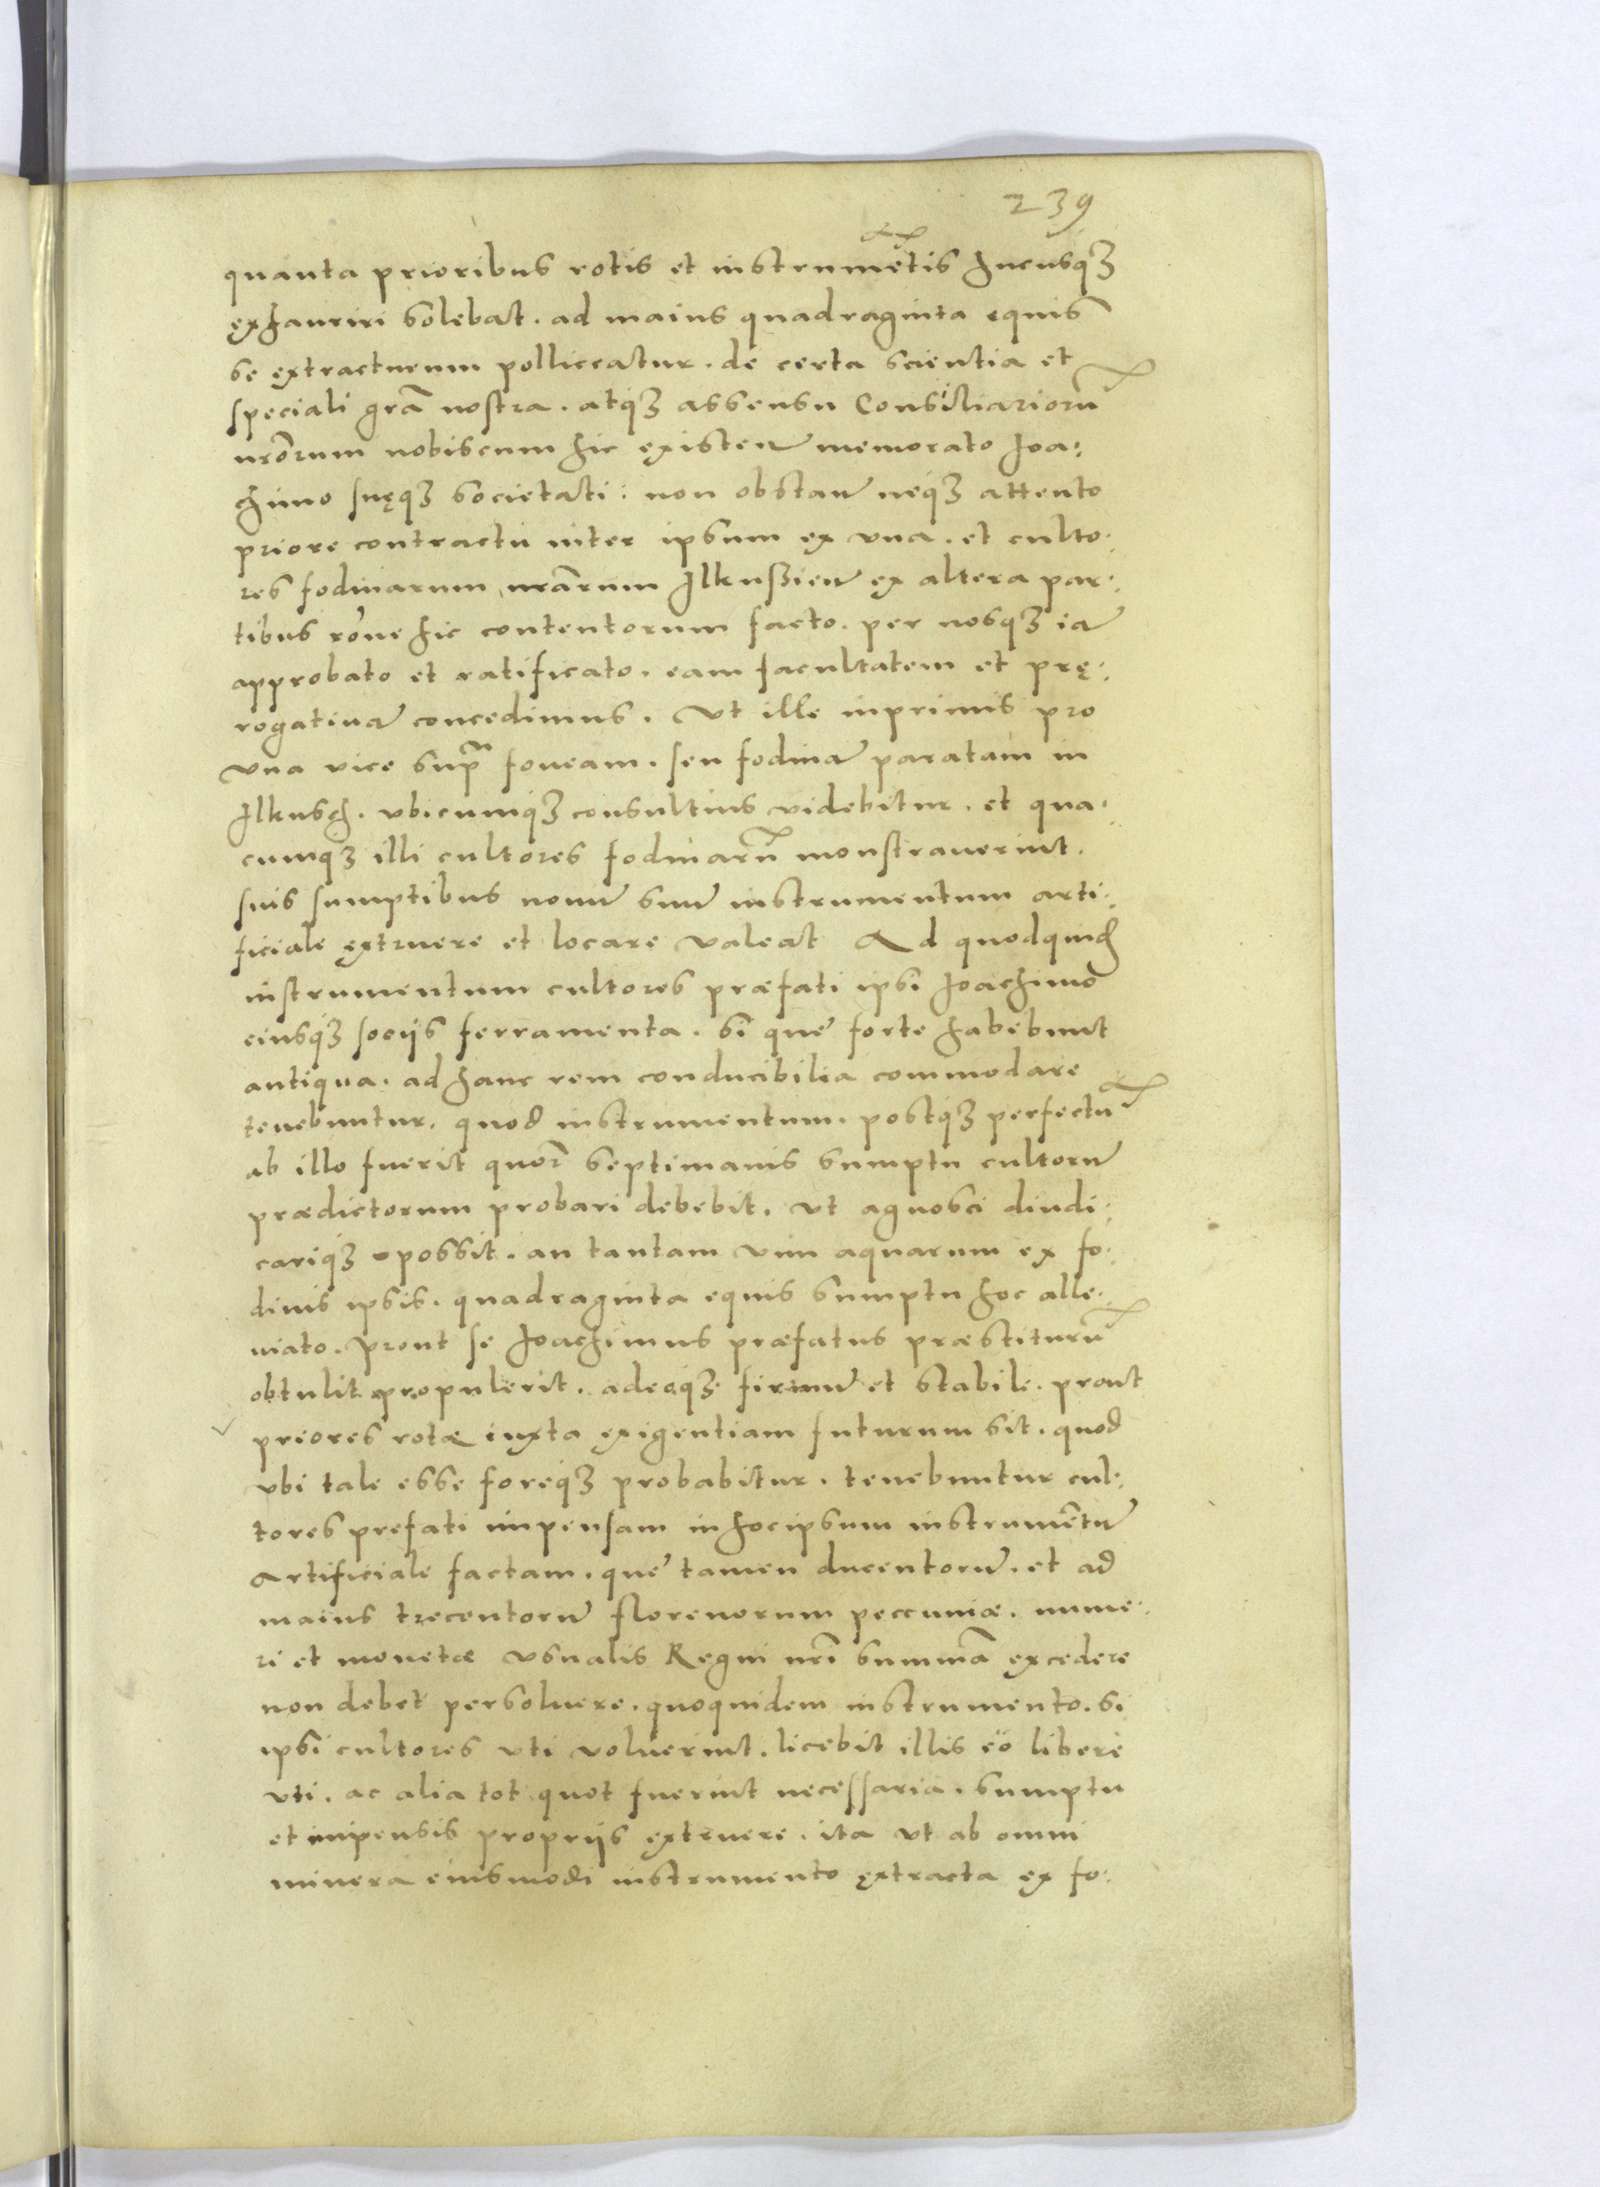 239
quanta prioribus rotis et instrume͂tis hucusqꝫ
ęxhauriri solebat. ad maius quadraginta equis
se extracturum polliceatur. de certa scientia et
speciali gra͂ nostra. atqꝫ assensu Consiliarioru͂
nr͂orum nobiscum hic existen͂ memorato Joa:
chimo suęqꝫ societati: non obstan͂ neqꝫ attento
priore contractu inter ipsum ex vna. et culto:
res fodinarum nr͂arum Ilkussien͂ ex altera par:
tibus ro͂ne hic contentorum facto. per nosqꝫ ia͂
approbato et ratificato. eam facultatem et prę:
rogatiua͂ concedimus. Vt ille inprimis pro
vna vice supra foueam. seu fodina͂ paratam in
Ilkusch. vbicumqꝫ consultius videbitur. et qua:
cumqꝫ illi cultores fodinaru͂ monstrauerint.
suis sumptibus nouu͂ suu͂ instrumentum arti:
ficiale ęxtruere et locare valeat Ad quodquid͂
instrumentum cultores præfati ipsi Joachimo
eiusqꝫ socijs ferramenta. si quę forte habebunt
antiqua. ad hanc rem conducibilia commodare
tenebuntur. quod instrumentum. postqꝫ perfectu͂
ab illo fuerit quor͂ septimanis sumptu cultoru͂
prædictorum probari debebit. vt agnosci diudi:
cariqꝫ possit. an tantam vim aquarum ex fo:
dinis ipsis. quadraginta equis sumptu hoc alle:
uiato. prout se Joachimus præfatus præstituru͂
obtulit propulerit. adeoqꝫ firmu͂ et stabile. prout
priores rotæ iuxta exigentiam futurum sit. quod
vbi tale esse foreqꝫ probabitur. tenebuntur cul:
tores prefati impensam in hocipsum instrume͂tu͂
artificiale factam. quę tamen ducentoru͂. et ad
maius trecentoru͂ florenorum peccuniæ. nume:
ri et monetæ vsualis Regni nr͂i summa͂ excedere
non debet persoluere. quoquidem instrumento. si
ipsi cultores vti voluerint. licebit illis eo libere
vti. ac alia tot quot fuerint necessaria. sumptu
et impensis proprijs extruere. ita vt ab omni
minera eiusmodi instrumento ęxtracta ex fo: